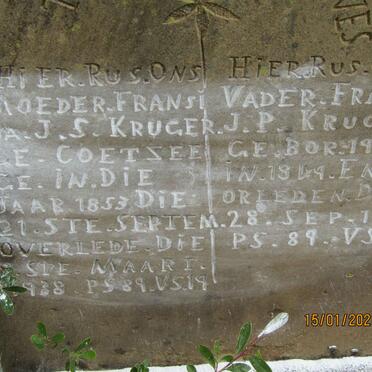 HIER.RUS.ONS
MOEDER.FRANSI
A.J.S.KRUGER.
GE.COETZEE
GE.IN.DIE
JAAR 1853.DIE.
21.STE.SEPTEM.
OVERLEDE.DIE
STE.MAART.
1938 PS 89.VS.19
HIER.RUS.
VADER.FRA
J.P.KRUG
GE.BOR.19
IN.1849.EN
OREEDEN.D
28.SEP.1
PS.89.VS
15/01/202